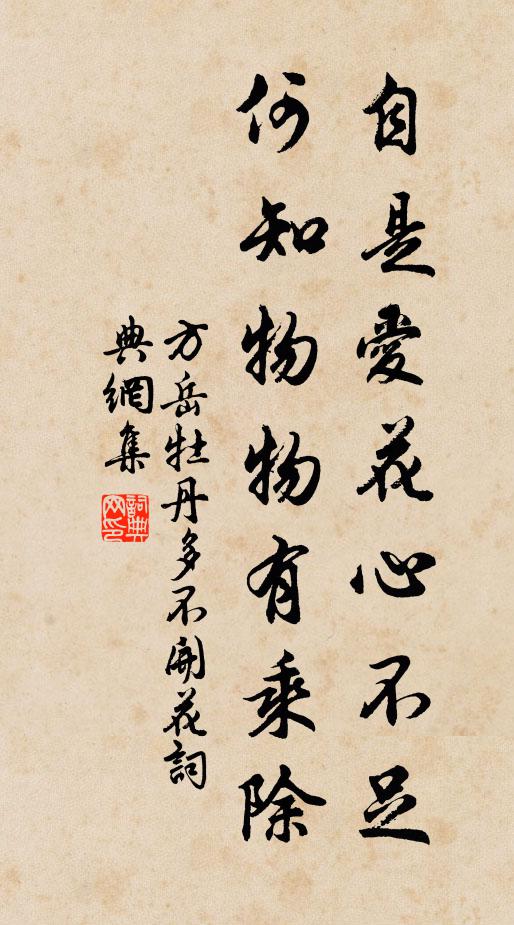 自是愛花心不足
何知物物有乘除
方岳牡丹多不開花詞
典網集
詞典网印